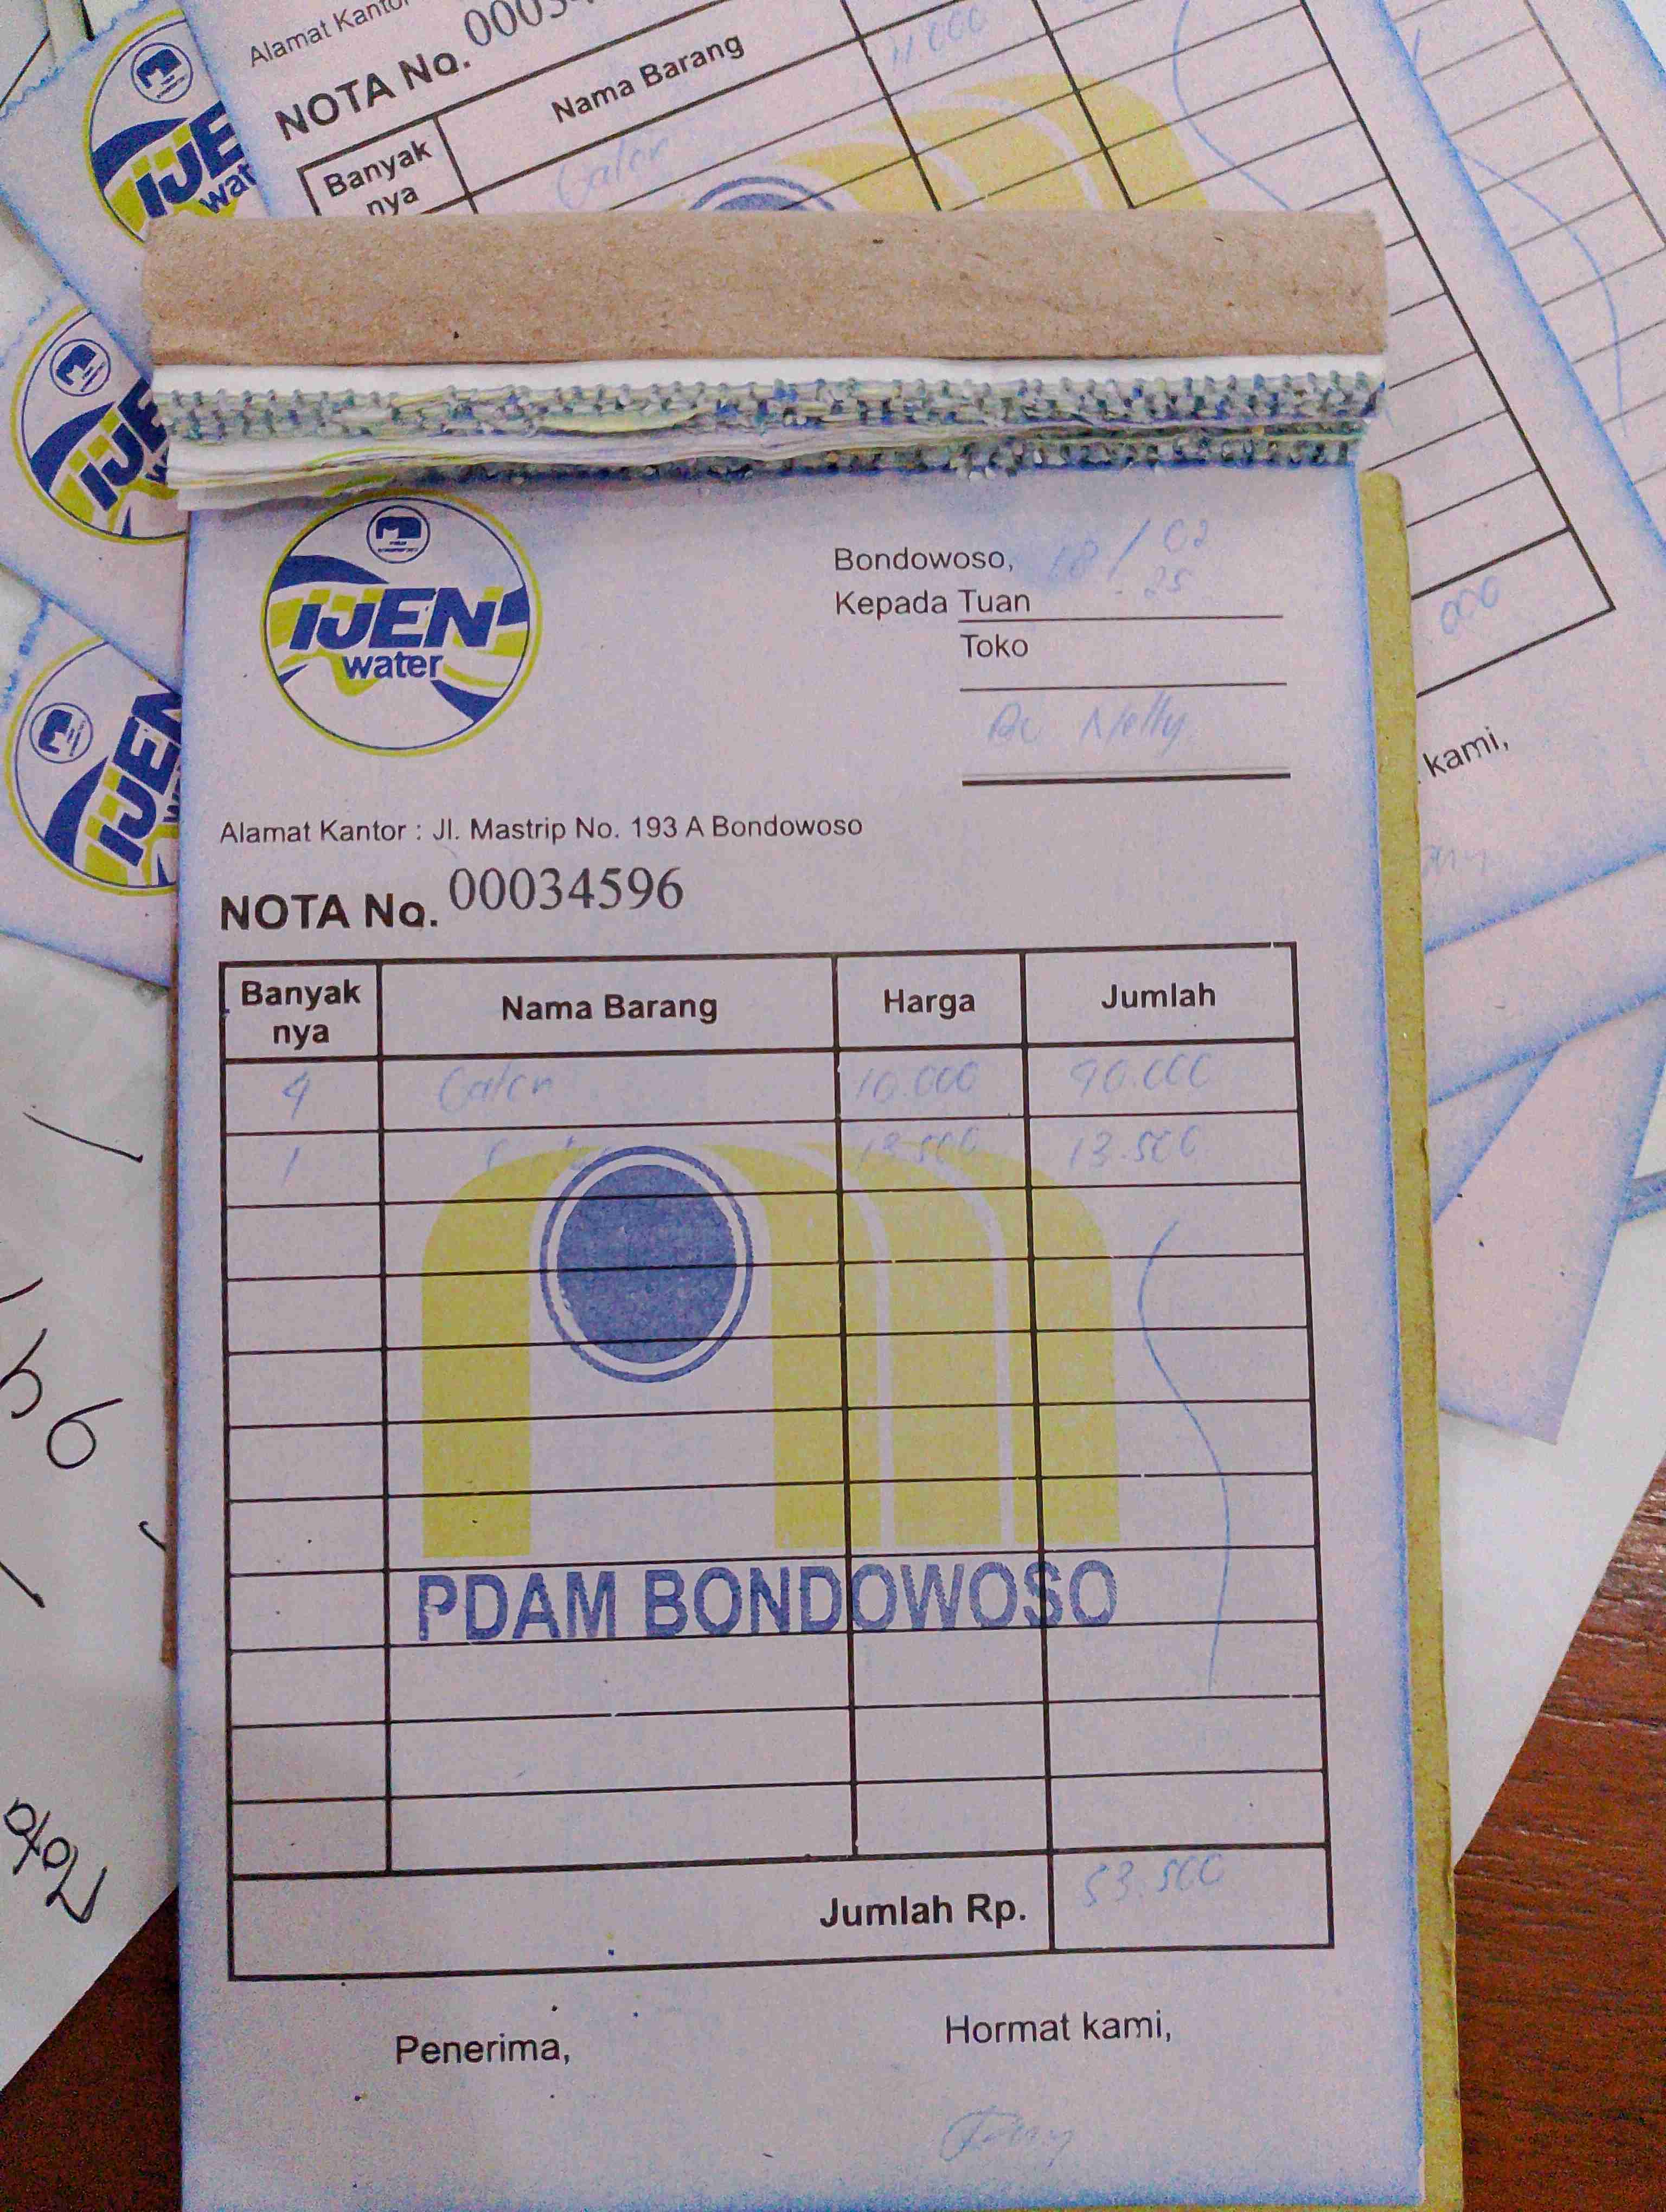 Alamat Kantor
NOTA No. 0003
Banyak nya
Nama Barang
11.000
Galon
IJE
wat
IJE
IJEN
000
kami,
IJEN
water
Bondowoso, 18 / 02 - 25
Kepada Tuan
Toko
Bu Nelly
Alamat Kantor : Jl. Mastrip No. 193 A Bondowoso
NOTA No. 00034596
Banyak nya Nama Barang Harga Jumlah
4 Galon 10.000 40.000
1 13.500 13.500
PDAM BONDOWOSO
Jumlah Rp. 53.500
Penerima, Hormat kami,